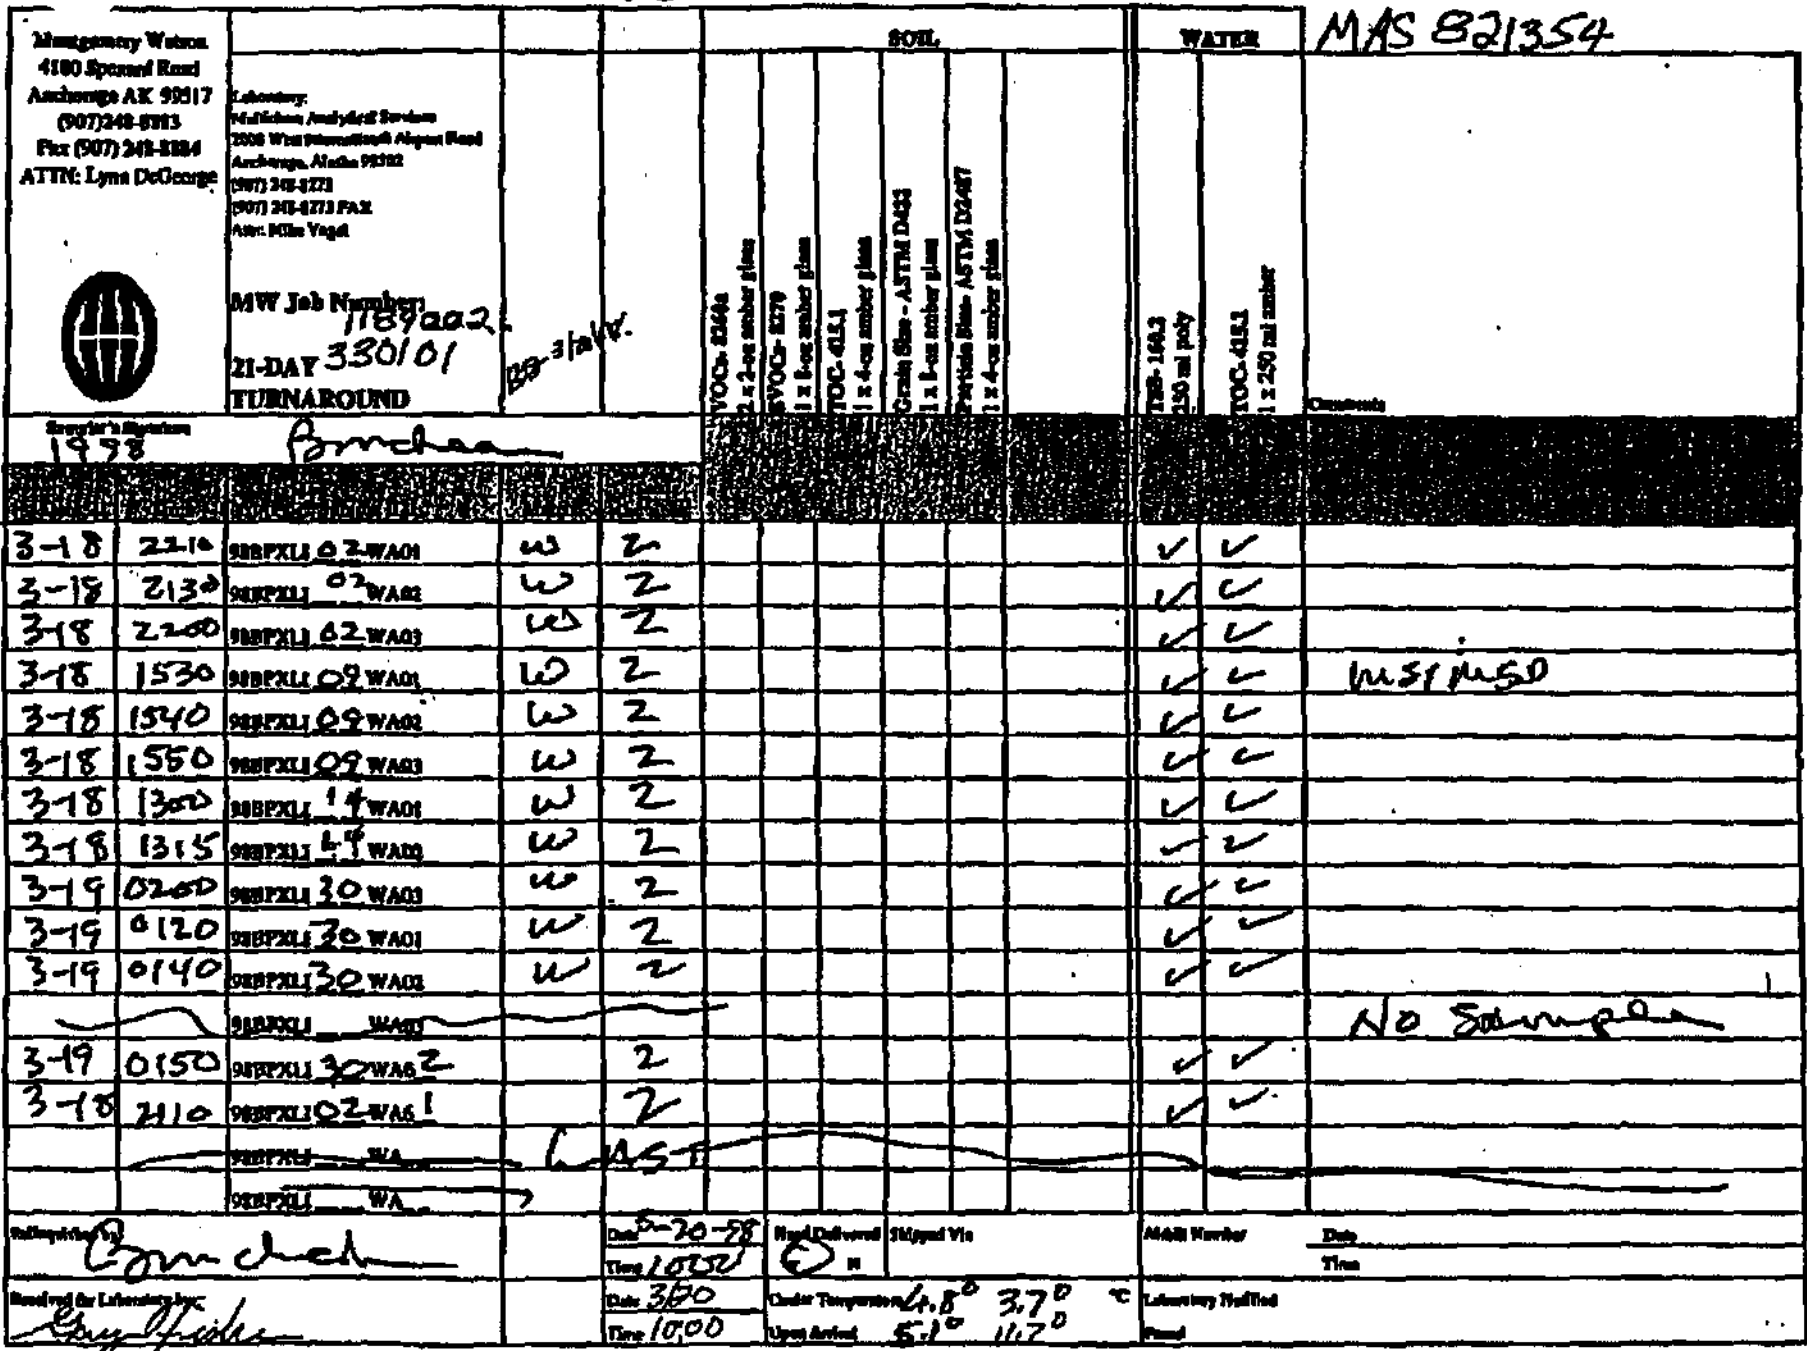 MAS 821354
Montgomery Watson
4100 Spenard Road
Anchorage AK 99517
(907)248-8883
Fax (907) 248-8884
ATTN: Lynn DeGeorge
Laboratory:
Multichem Analytical Services
2000 West International Airport Road
Anchorage, Alaska 99502
(907) 248-8273
(907) 248-8273 FAX
Attn: Mike Vogel
MW Job Number:
1189002.
330101
21-DAY
TURNAROUND
SOIL
WATER
VOCs- 8260a
2 x 2-oz amber glass
SVOCs- 8270
1 x 8-oz amber glass
TOC- 415.1
1 x 4-oz amber glass
Grain Size - ASTM D422
1 x 8-oz amber glass
Particle Size- ASTM D2487
1 x 4-oz amber glass
TSS- 160.2
250 ml poly
TOC- 415.1
1 x 250 ml amber
Comments
Sampler's Signature
1998
3-18 2210 98BPXLI 02 WA01 W 2 ✓ ✓
3-18 2130 98BPXLI 02 WA02 W 2 ✓ ✓
3-18 2200 98BPXLI 02 WA03 W 2 ✓ ✓
3-18 1530 98BPXLI 09 WA01 W 2 ✓ ✓ MS/MSD
3-18 1540 98BPXLI 09 WA02 W 2 ✓ ✓
3-18 1550 98BPXLI 09 WA03 W 2 ✓ ✓
3-18 1300 98BPXLI 14 WA01 W 2 ✓ ✓
3-18 1315 98BPXLI 14 WA02 W 2 ✓ ✓
3-19 0200 98BPXLI 30 WA03 W 2 ✓ ✓
3-19 0120 98BPXLI 30 WA01 W 2 ✓ ✓
3-19 0140 98BPXLI 30 WA02 W 2 ✓ ✓
98BPXLI ___ WA03 No Sample
3-19 0150 98BPXLI 30 WA6 2 2 ✓ ✓
3-18 2110 98BPXLI 02 WA6 1 2 ✓ ✓
98BPXLI ___ WA LAST
98BPXLI ___ WA
Relinquished by:
Date 3-20-98
Time 1000
Hand Delivered
N
Shipped Via
Airbill Number
Date
Time
Received for Laboratory by:
Date 3/20
Time 10:00
Cooler Temperature 4.8° 3.7° °C
Upon Arrival 5.1° 11.7°
Laboratory Notified